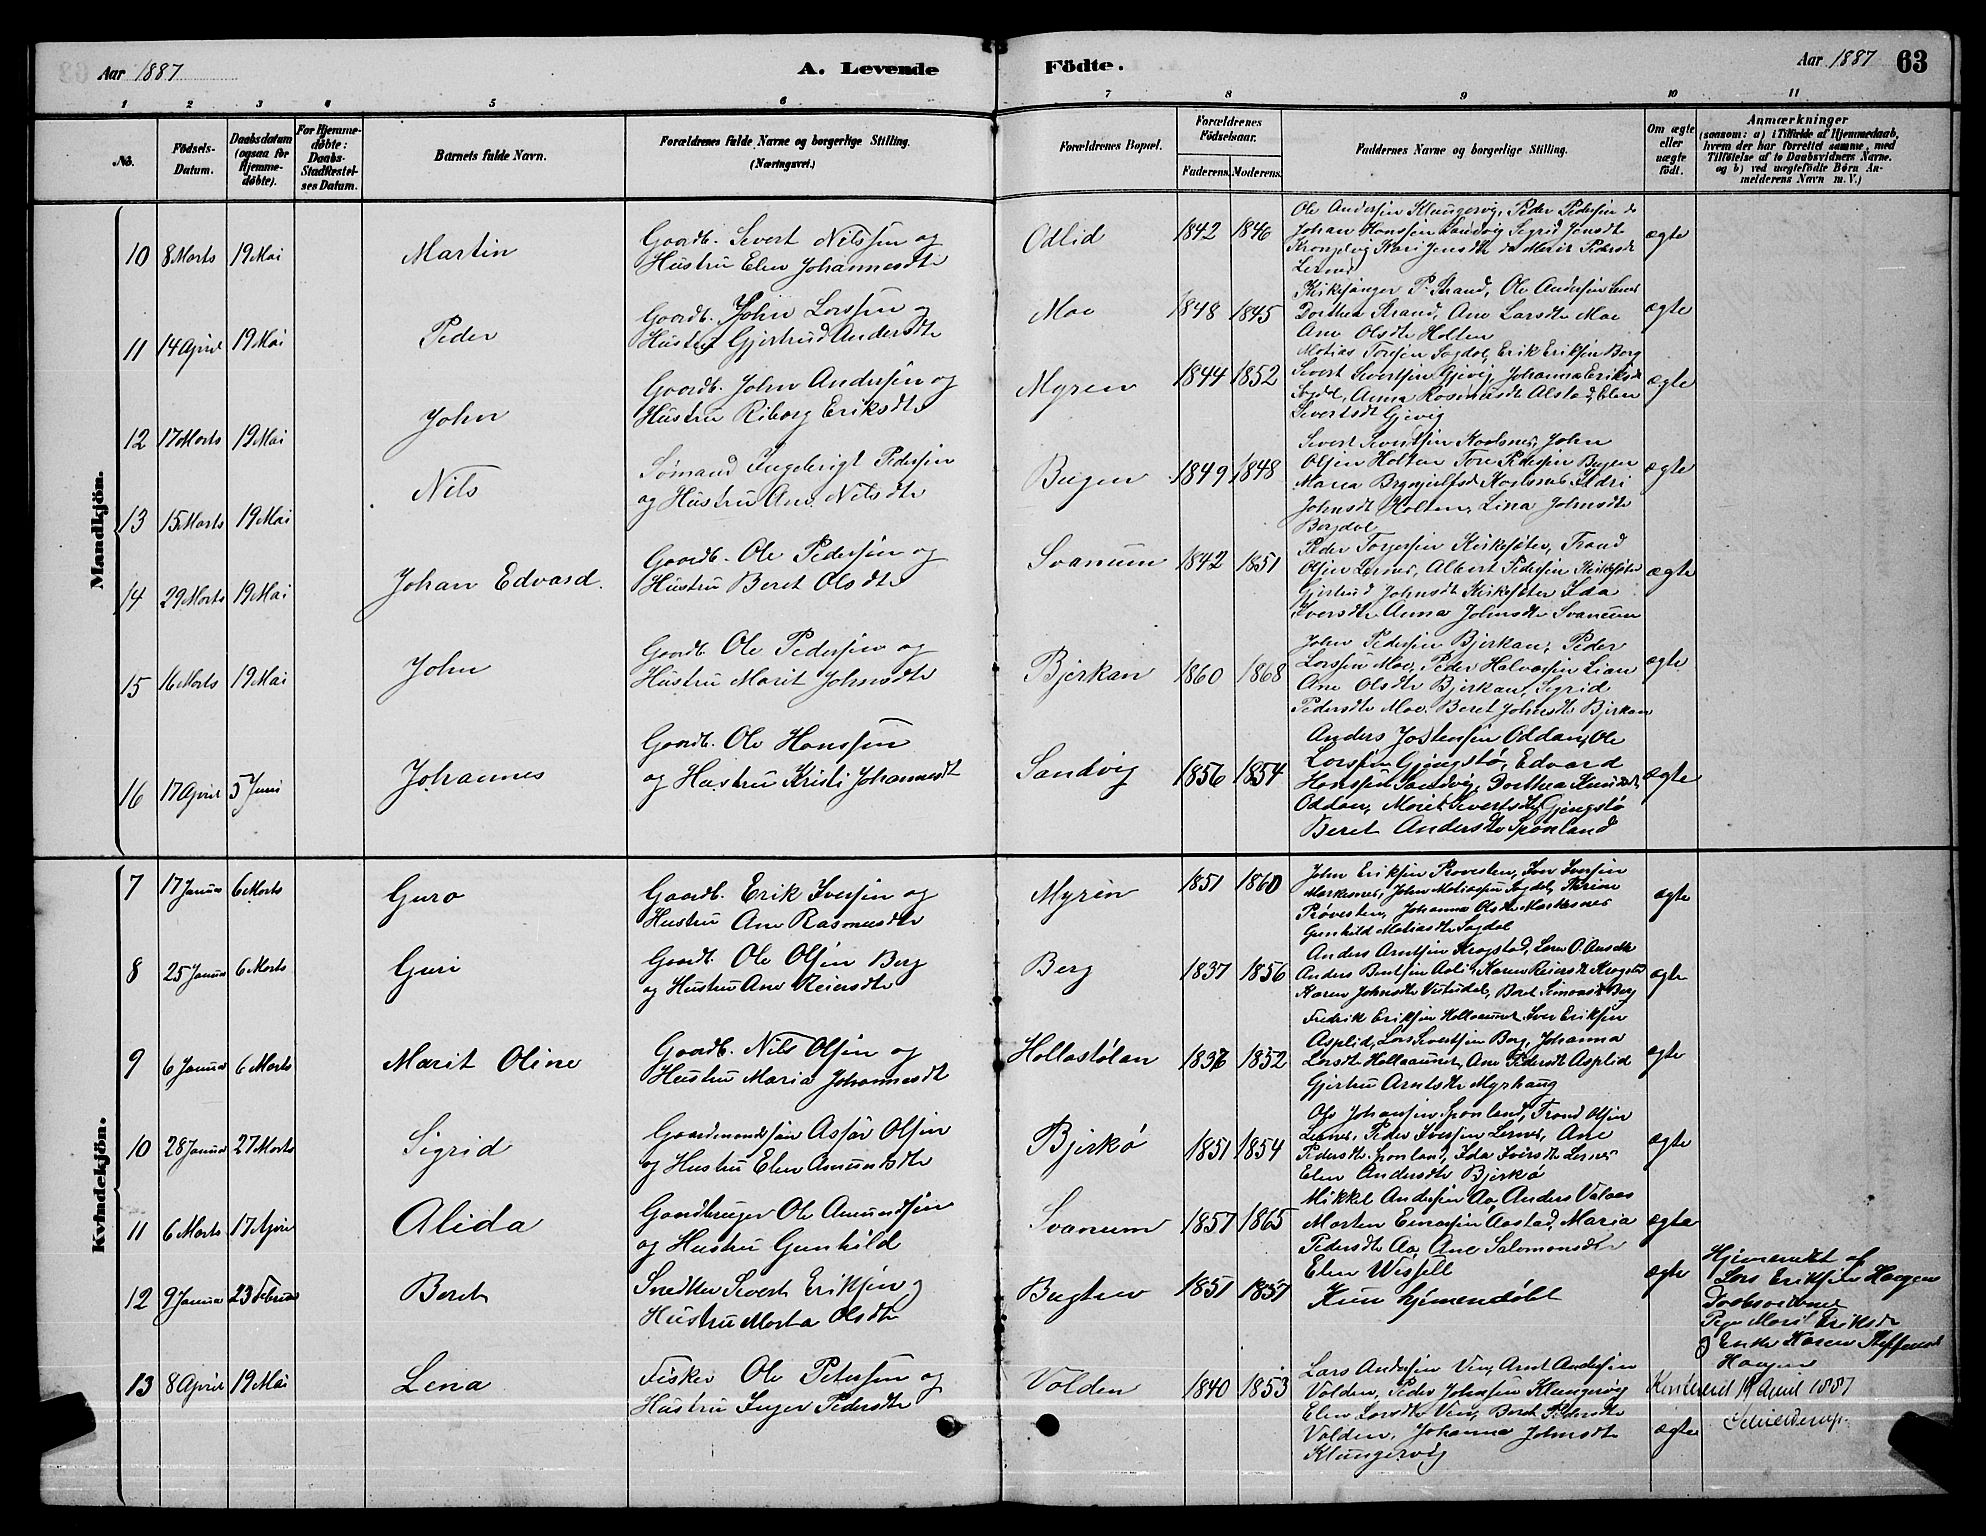 Aar 1887
A. Levende
Födte.
Aar 1887
63
1 2 3 4 5 6 7 8 9 10 11
No.
Födsels-Datum.
Daabsdatum (ogsaa for Hjemme-døbte).
For Hjemme-døbte: Daabs-Stadfæstelses Datum.
Barnets fulde Navn.
Forældrenes fulde Navne og borgerlige Stilling. (Næringsvei.)
Forældrenes Bopæl.
Forældrenes Födselsaar.
Faderens. Moderens.
Faddernes Navne og borgerlige Stilling.
Om ægte eller uægte født.
Anmærkninger
(saasom: a) i Tilfælde af Hjemmedaab, hvem der har forrettet samme, med Tilføielse af to Daabsvidners Navne. og b) ved uægtefödte Börn Anmelderens Navn m. V.)
Mandkjön.
10 8 Marts 19 Mai Martin
Gaardb. Sivert Nilssen og
Hustru Elen Johannesdtr
Odlid 1842 1846
Ole Andersen Klungervig, Peder Pedersen do
Johan Hanssen Sandvig Sigrid Jensdtr
Kari Jensdtr do Marit Pedersdtr
Lernes
ægte
11 14 April 19 Mai Peder
Gaardb. John Larssen og
Hustru Gjertrud Andersdtr
Moe 1848 1845
Kirkesanger P. Strand, Ole Andersen Lernes
Dorthea Strand, Ane Larsdtr Moe
Ane Olsdtr Holten
ægte
12 17 Marts 19 Mai John
Gaardb. John Andersen og
Hustru Riborg Eriksdtr
Myren 1844 1852
Matias Toresen Sagdal, Erik Eriksen Berg
Sivert Sivertsen Gjevig, Johanna Eriksdtr
Sagdal, Anna Rasmusdtr Alstad, Elen
Sivertsdtr Gjevig
ægte
13 15 Marts 19 Mai Nils
Sømand Ingebrigt Pedersen
og Hustru Ane Nilsdtr
Bugen 1849 1848
Sivert Sivertsen, John
Olsen Holten Tore Pedersen Bugen
Maria Ildri
Johnsdt Holten, Lina Johnsdtr
ægte
14 29 Marts 19 Mai Johan Edvard.
Gaardb. Ole Pedersen og
Hustru Beret Olsdtr
Svanum 1842 1851
Peder Torgersen Kirksæter, Trond
Olsen Lernes, Albert Pedersen Kirksæter
Gjertrud Johnsdt Kirksæter Ida
Iversdtr Anna Johnsdtr Svanum
ægte
15 16 Marts 19 Mai John
Gaardb. Ole Pedersen og
Hustru Marit Johnsdtr
Bjerkan 1860 1868
John Pedersen Bjerkan, Peder
Larssen Moe, Peder Halvorsen Lian
Ane Olsdtr Bjerkan, Sigrid
Pedersdtr Moe, Beret Johnsdtr Bjerkan
ægte
16 17 April 5 Juni Johannes
Gaardb. Ole Hanssen
og Hustru Kristi Johannesdt
Sandvig 1856 1854
Anders Jostensen Oddan, Ole
Larssen Gjengstø, Edvard
Hanssen Sandvig, Dorthea Knudsdt
Oddan, Marit Sivertsdtr Gjengstø
Beret Andersdtr Spønland
ægte
Kvindekjön.
7 17 Januar 6 Marts Guro
Gaardb. Erik Iversen og
Hustru Ane Rasmusdtr
Myren 1851 1860
John Eriksen Prøvesten, Iver Iversen
Markesnes, John Matiassen Sagdal, Trine
Prøvesten, Johanna Olsdtr Markesnes
Gunhild Matiasdtr Sagdal
ægte
8 25 Januar 6 Marts Guri
Gaardb. Ole Olsen Berg
og Hustru Ane Reiersdtr
Berg 1837 1856
Anders Arntsen Krogstad, Lars O.
Anders Berntsen Aalid, Karen Reiersdt Krogstad
Karen Johnsdtr, Beret Simonsdt Berg
ægte
9 6 Januar 6 Marts Marit Oline
Gaardb. Nils Olsen og
Hustru Maria Johannesdt
Hollastølan 1836 1852
Fredrik Eriksen Hollaaunet, Iver Eriksen
Asplid, Lars Sivertsen Berg, Johanna
Larsdt Hollaaunet, Ane Pedersdt Asplid
Gjertru Arntsdtr Myrhaug
ægte
10 28 Januar 27 Marts Sigrid
Gaardmandssøn Assar Olsen
og Hustru Elen Amundsdtr
Bjerkø 1851 1854
Ole Johansen Spønland, Trond Olsen
Lernes, Peder Iversen Lernes, Ane
Pedersdtr Spønland, Ida Iversdtr Lernes
Elen Andersdtr Bjerkø
ægte
11 6 Marts 17 April Alida
Gaardbruger Ole Amundsen
og Hustru Gunhild
Svanum 1857 1865
Mikkel Andersen Aa, Anders Valaas
Morten Einarsen Aastad, Maria
Pedersdtr Aa, Ane Salomonsdtr
Elen Wessell
ægte
12 9 Januar 23 Februar Beret
Snedker Sivert Eriksen og
Hustru Marta Olsdtr
Bugten 1851 1851
Kun hjemmedøbt
ægte
Hjemmedøbt af
Lars Eriksen Haugen
Daabsvidner
Pige Marit Eriksdtr
og Enke Karen Steffensdt
Haugen
13 8 April 19 Mai Lena
Fisker Ole Petersen og
Hustru Inger Pedersdtr
Valden 1840 1853
Lars Andersen Ven, Arnt Andersen
Valden, Peder Johnsen Klungervig
Elen Larsdtr Ven, Beret Pedersdtr
Valden, Johanna Johnsdtr
Klungervig
ægte
19 April 1887